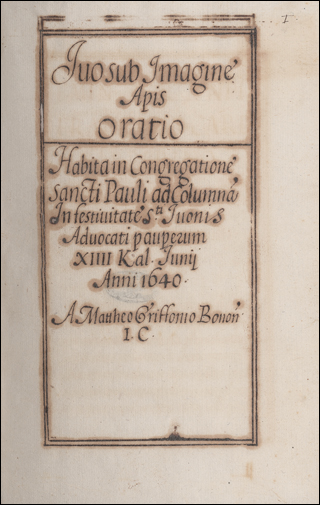 1
Iuo sub Imagine
Apis
Oratio
Habita in Congregatione
Sancti Pauli ad Columnã
In festiuitate S.ti Iuonis
Aduocati pauperum
XIIII Kal. Iunij
Anni 1640.
A Mattheo Griffonio Bonon.
I. C.